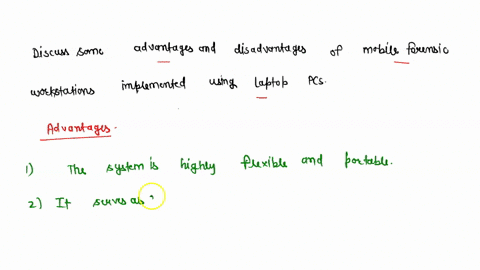 Discuss some advantages and disadvantages of mobile forensic
workstations implemented using laptop PCs.
Advantages.
1) The system is highly flexible and portable.
2) It serves as